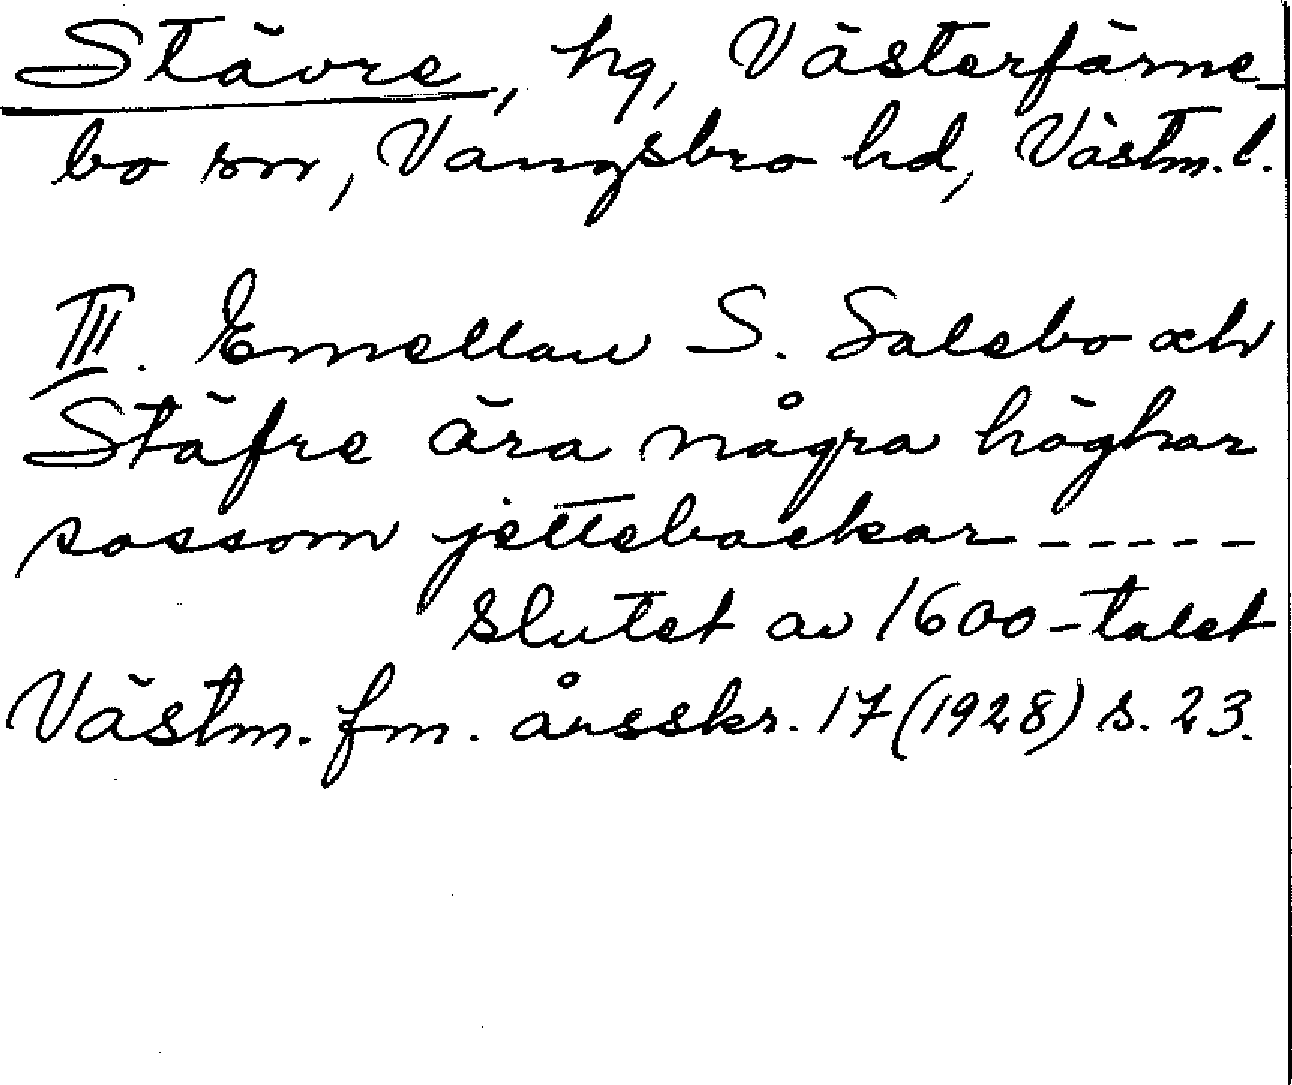 Stävre, hg, Västerfärne-
bo sn, Vangsbro hd, Västm. l.
III. Emellan S. Salebo och
Stäfre ära några högar
sassom jettebackar -----
slutet av 1600-talet
Västm. fm. årsskr. 17 (1928) s. 23.